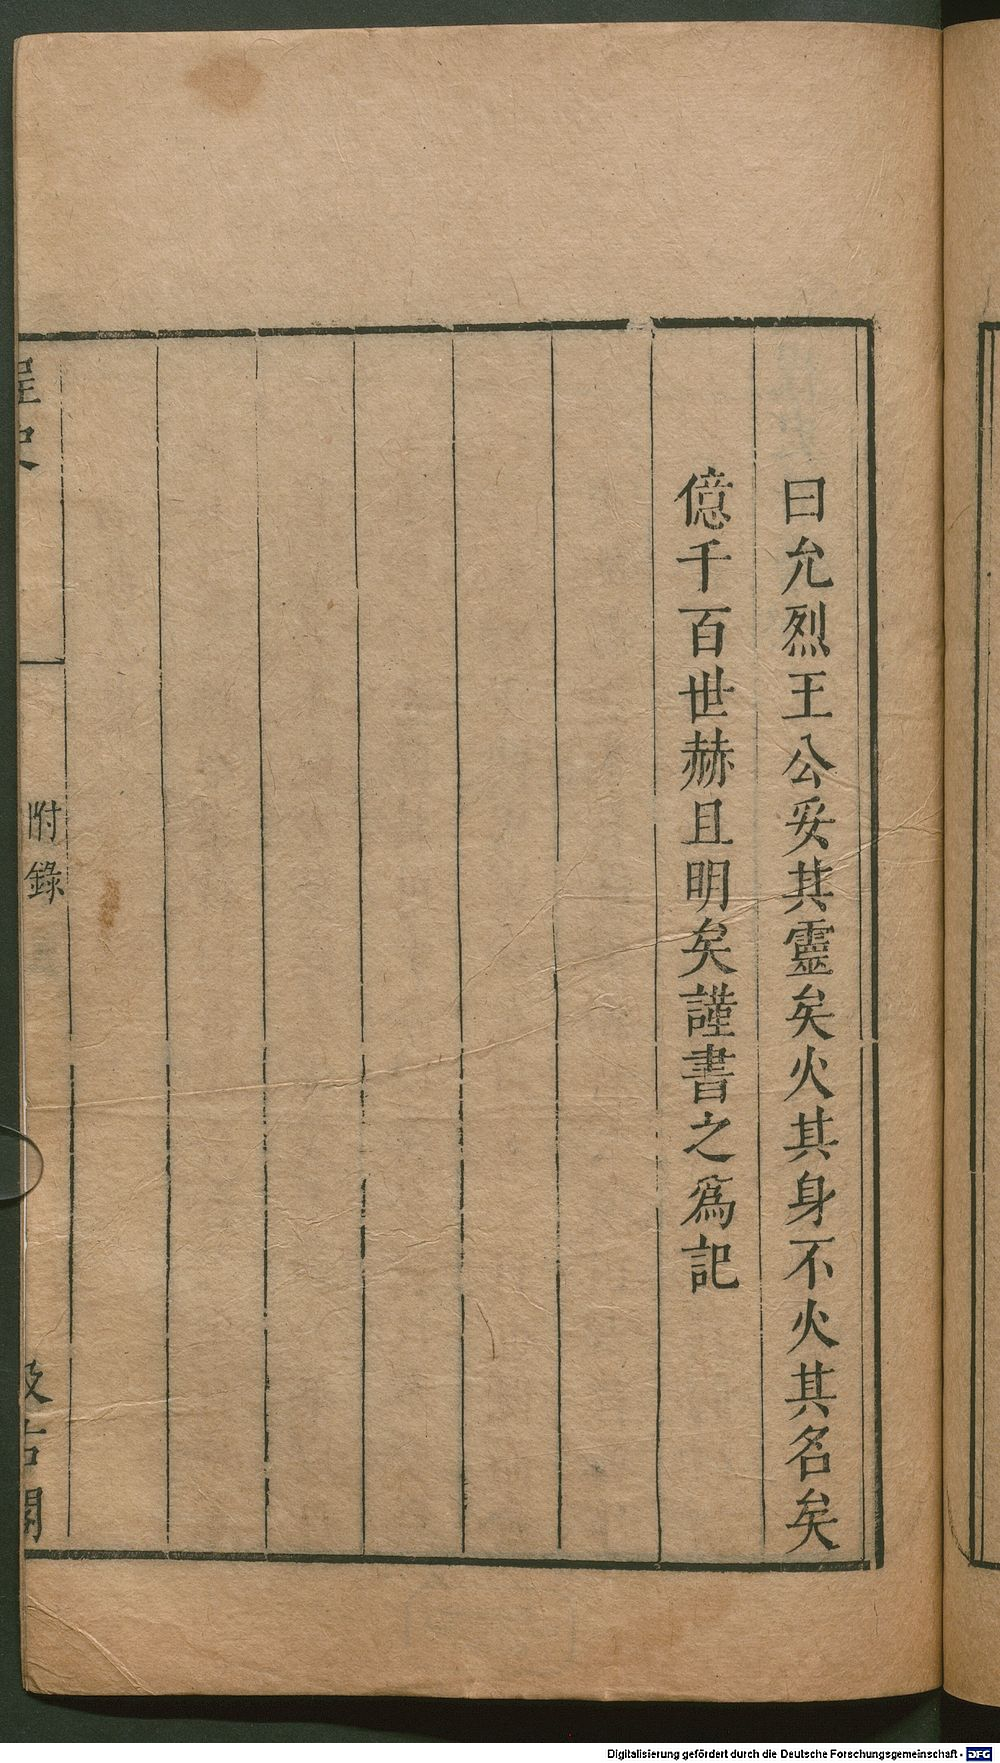 曰允烈王公妥其靈矣火其身不火其名矣
億千百世赫且明矣謹書之為記
桯史
附錄
汲古閣
Digitalisierung gefördert durch die Deutsche Forschungsgemeinschaft - DFG